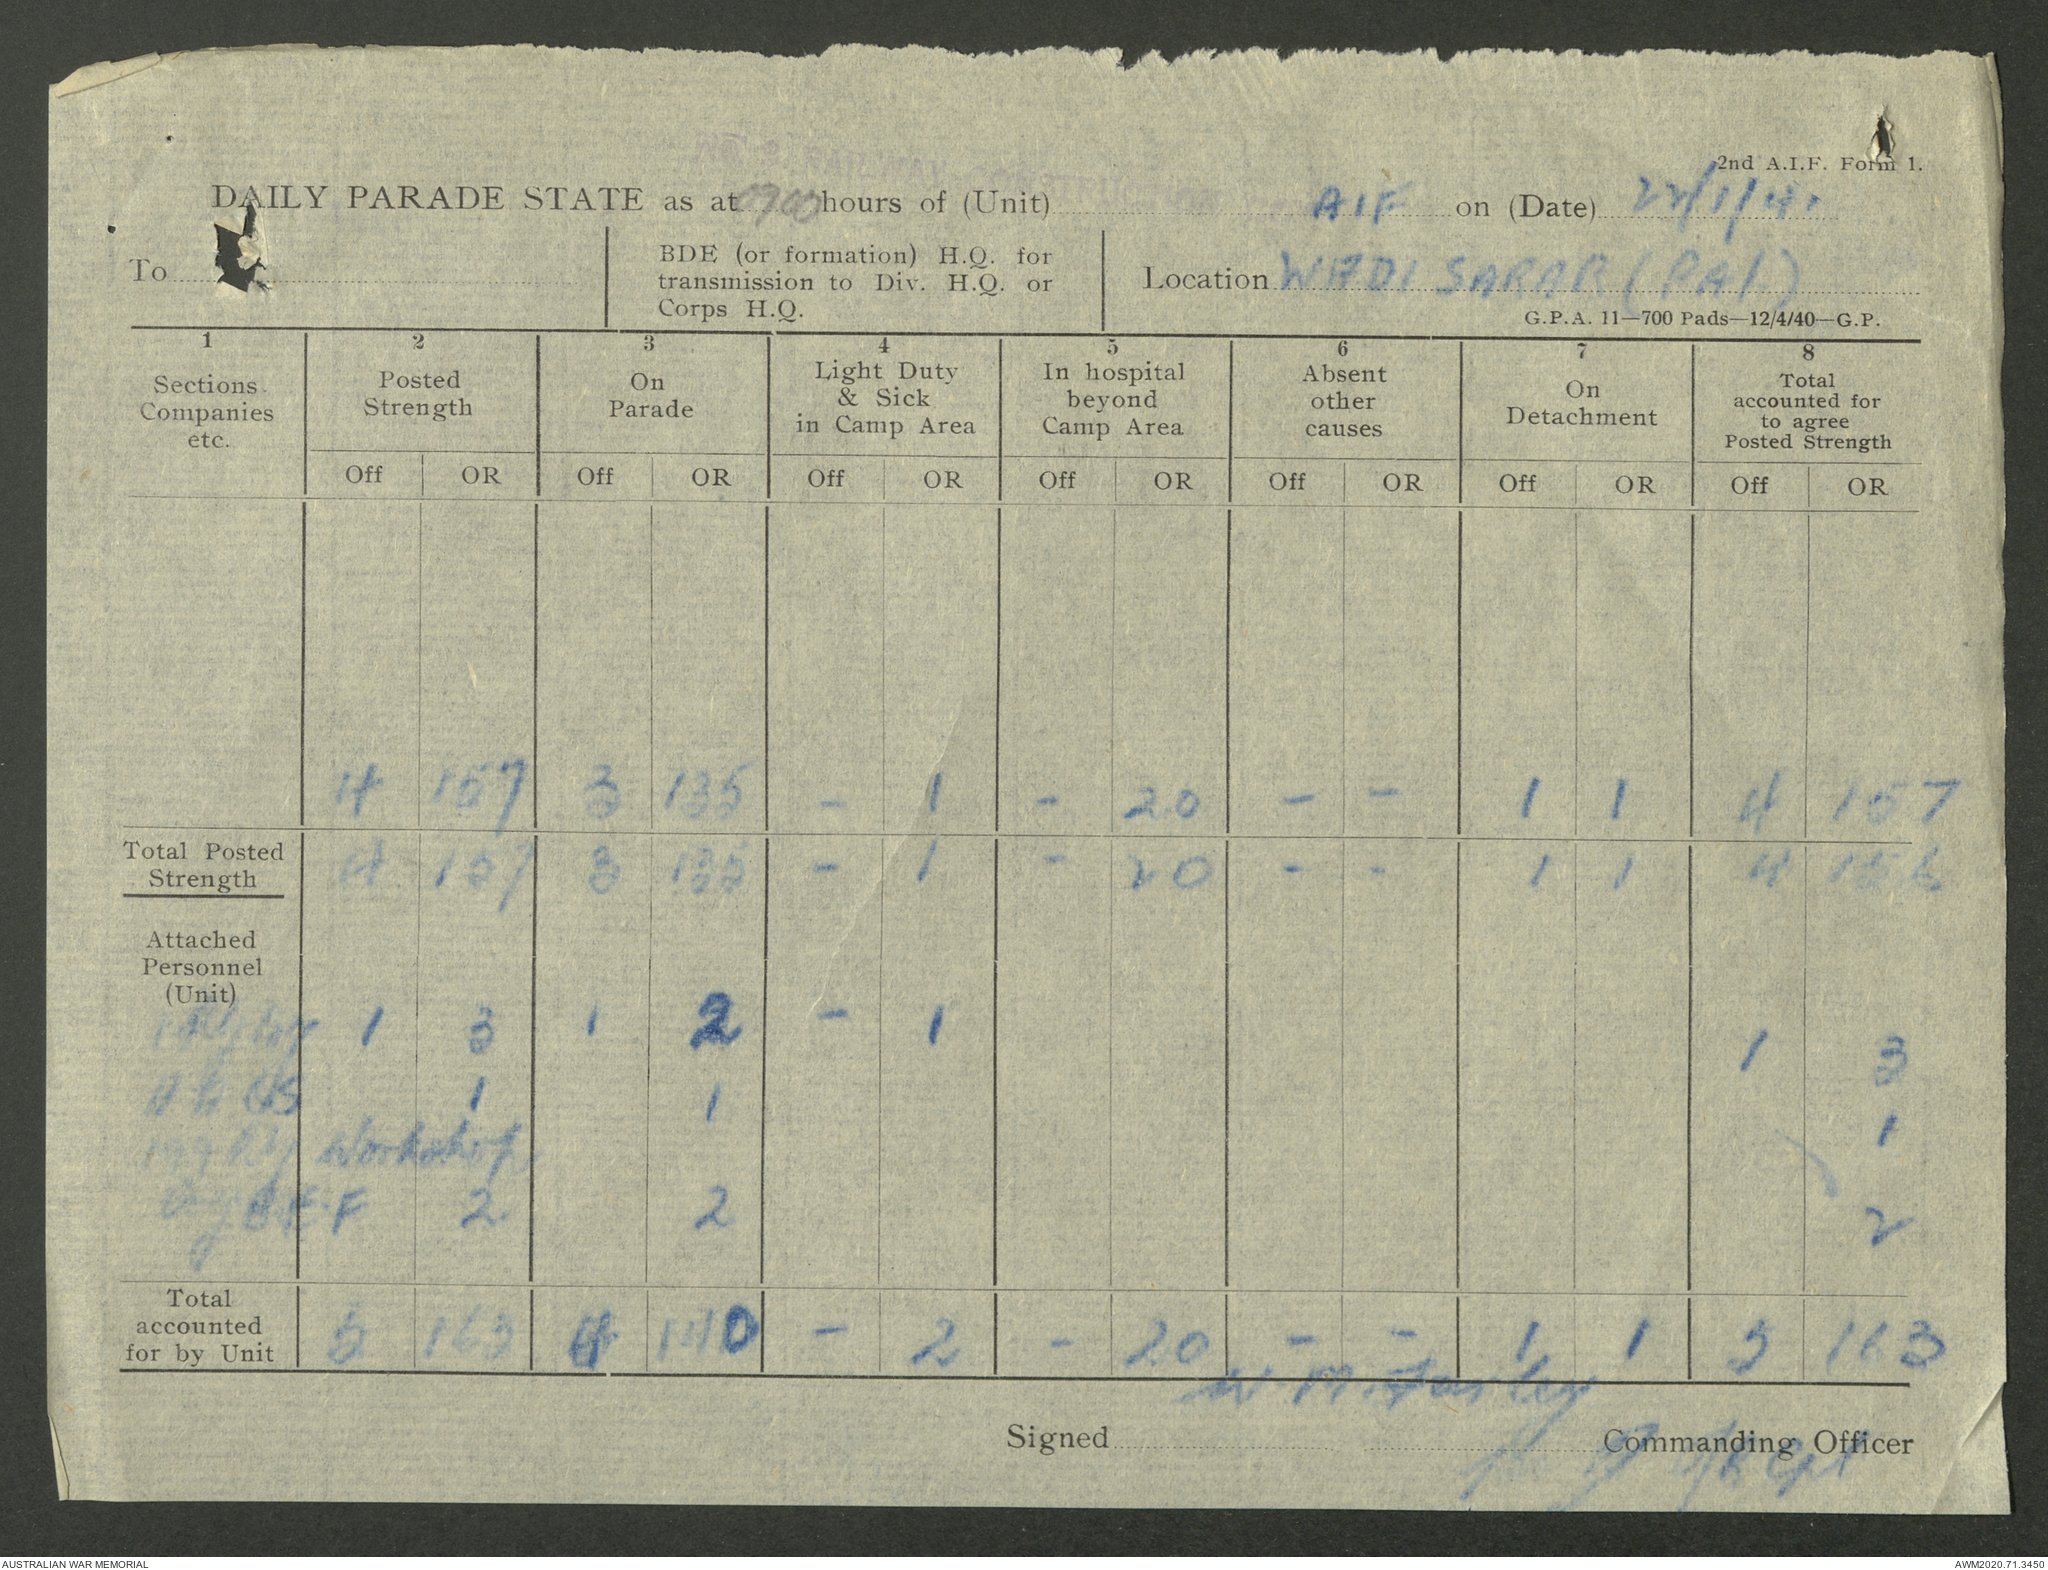 2nd A.I.F. Form 1.
DAILY PARADE STATE as at 0700 hours of (Unit) AIF on (Date) 22/1/41
To
BDE (or formation) H.Q. for
transmission to Div. H.Q. or
Corps H.Q.
Location WADI SARAR (PAL)
G.P.A. 11—700 Pads—12/4/40—G.P.
1 2 3 4 5 6 7 8
Sections Companies etc.
Posted Strength
On Parade
Light Duty & Sick in Camp Area
In hospital beyond Camp Area
Absent other causes
On Detachment
Total accounted for to agree Posted Strength
Off OR Off OR Off OR Off OR Off OR Off OR Off OR
4 157 3 135 - 1 - 20 - - 1 1 4 157
Total Posted Strength 4 157 3 135 - 1 - 20 - - 1 1 4
Attached
Personnel
(Unit)
1 3 1 2 - 1 1 3
1 1 1
Rly Workshop
B.E.F 2 2 2
Total accounted for by Unit 5 163 4 140 - 2 - 20 - - 1 1 5 163
Signed
Commanding Officer
AUSTRALIAN WAR MEMORIAL
AWM2020.71.3450